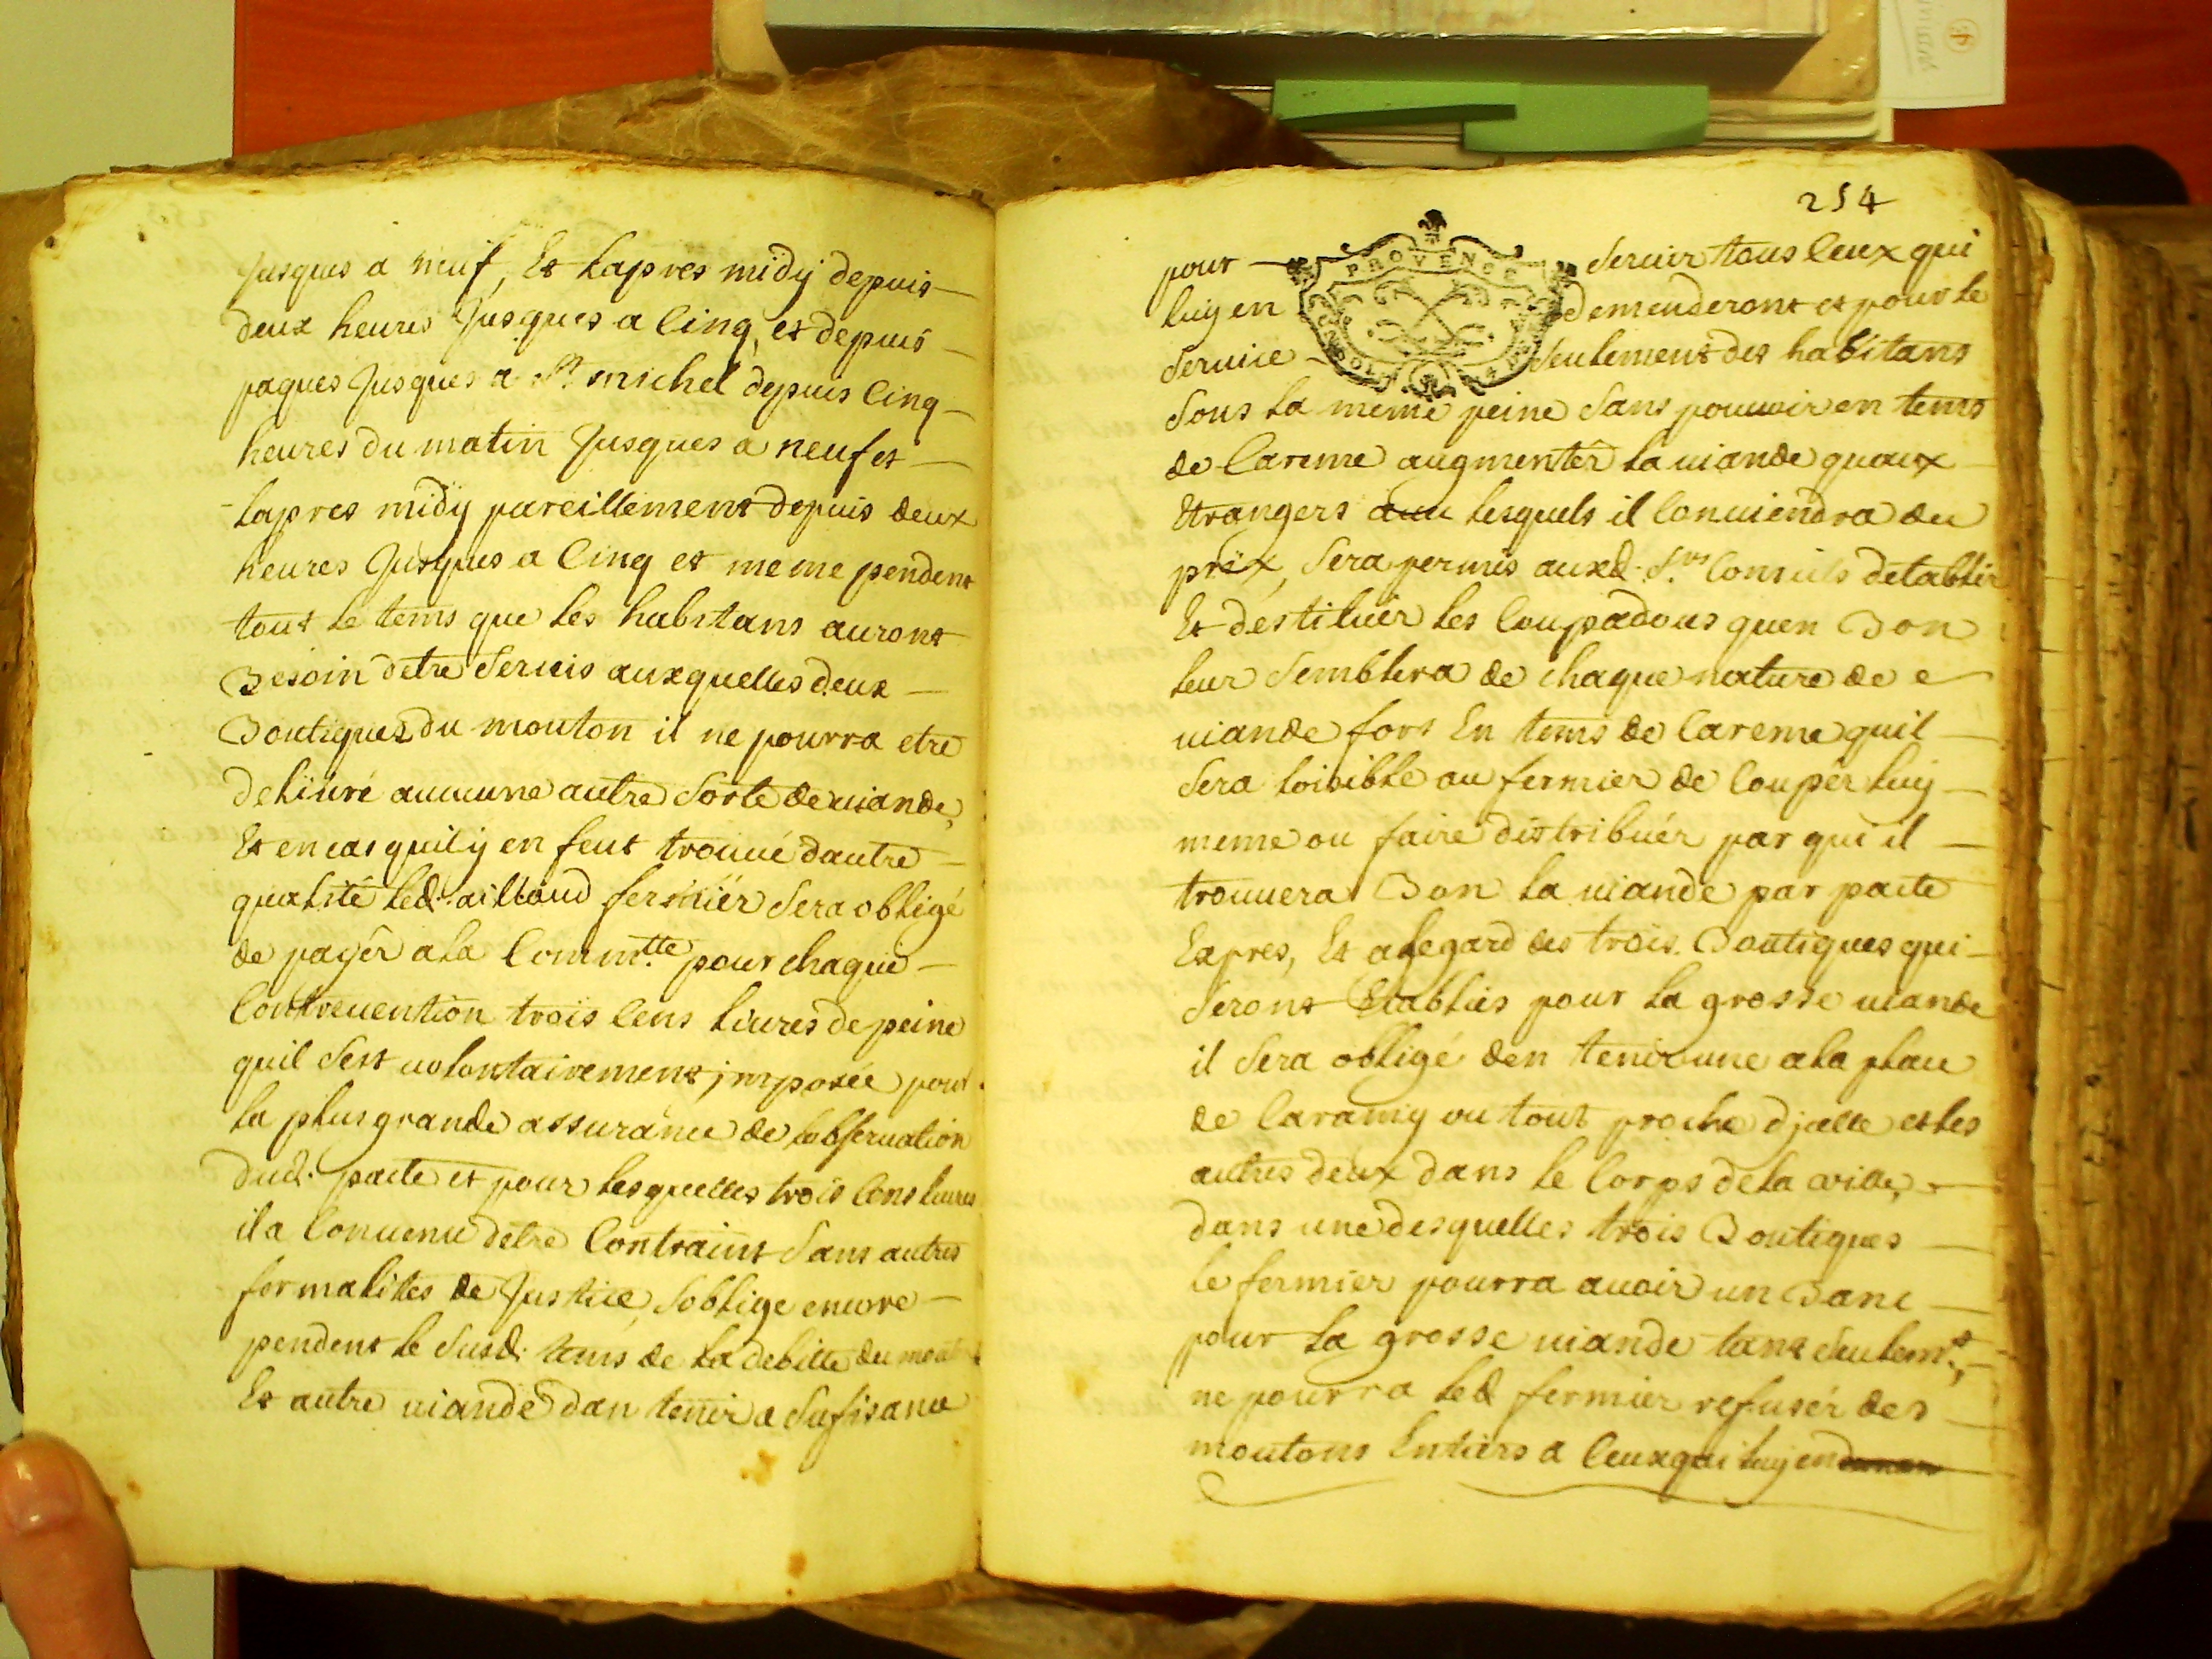 Jusques a neuf, Et Lapres midy depuis
deux heures Jusques a Cinq, et depuis
paques Jusques a St. michel depuis Cinq
heures du matin Jusques a neuf et
Lapres midy pareillement depuis deux
heures Jusques a Cinq et meme pendent
tout le tems que les habitans auront
Besoin detre Seruis auxquelles deux
Boutiques du mouton il ne pourra etre
deliuré aucune autre Sorte de uiande,
Et en cas quil y en feut trouué dautre
qualité led. aillaud fermiér Sera obligé
de payér a la Comm.tte pour chaque
Contreuention trois Cens Liures de peine
quil Sest uolontairement jmposée pour
la plus grande assurance de Lobseruation
dud. pacte et pour Lesquelles trois Cens liures
il a Conuenu detre Contraint Sans autres
formalités de Justice, Soblige encore
pendent le Susd. tems de La debitte du
Et autre uiande dan tenir a Sufisance
254
PROVENCE
pour Seruir tous Ceux qui
luy en demenderont et pour le
Seruice Seulement des habitans
Sous La meme peine Sans pouuoir en tems
de Careme augmentér La uiande quaux
Etrangers auec Lesquels il Conuiendra du
prix, Sera permis auxd. S.rs Consuls detablir
Et destituér les Coupadous quen Bon
leur Semblera de chaque nature de
uiande fors En tems de Careme quil
Sera loisible au fermier de Coupér luy
meme ou faire distribuér par qui il
trouuera Bon La uiande par pacte
Expres, Et a legard des trois Boutiques qui
Seront Etablies pour La grosse uiande
il Sera obligé den tenir une a la place
de Caramy ou tout proche djcelle et les
autres deux dans le Corps de La ville,
dans une desquelles trois Boutiques
le fermier pourra auoir un Banc
pour La grosse uiande tant Seulem.t,
ne pourra led fermier refusér des
moutons Entiers a Ceux qui luy en